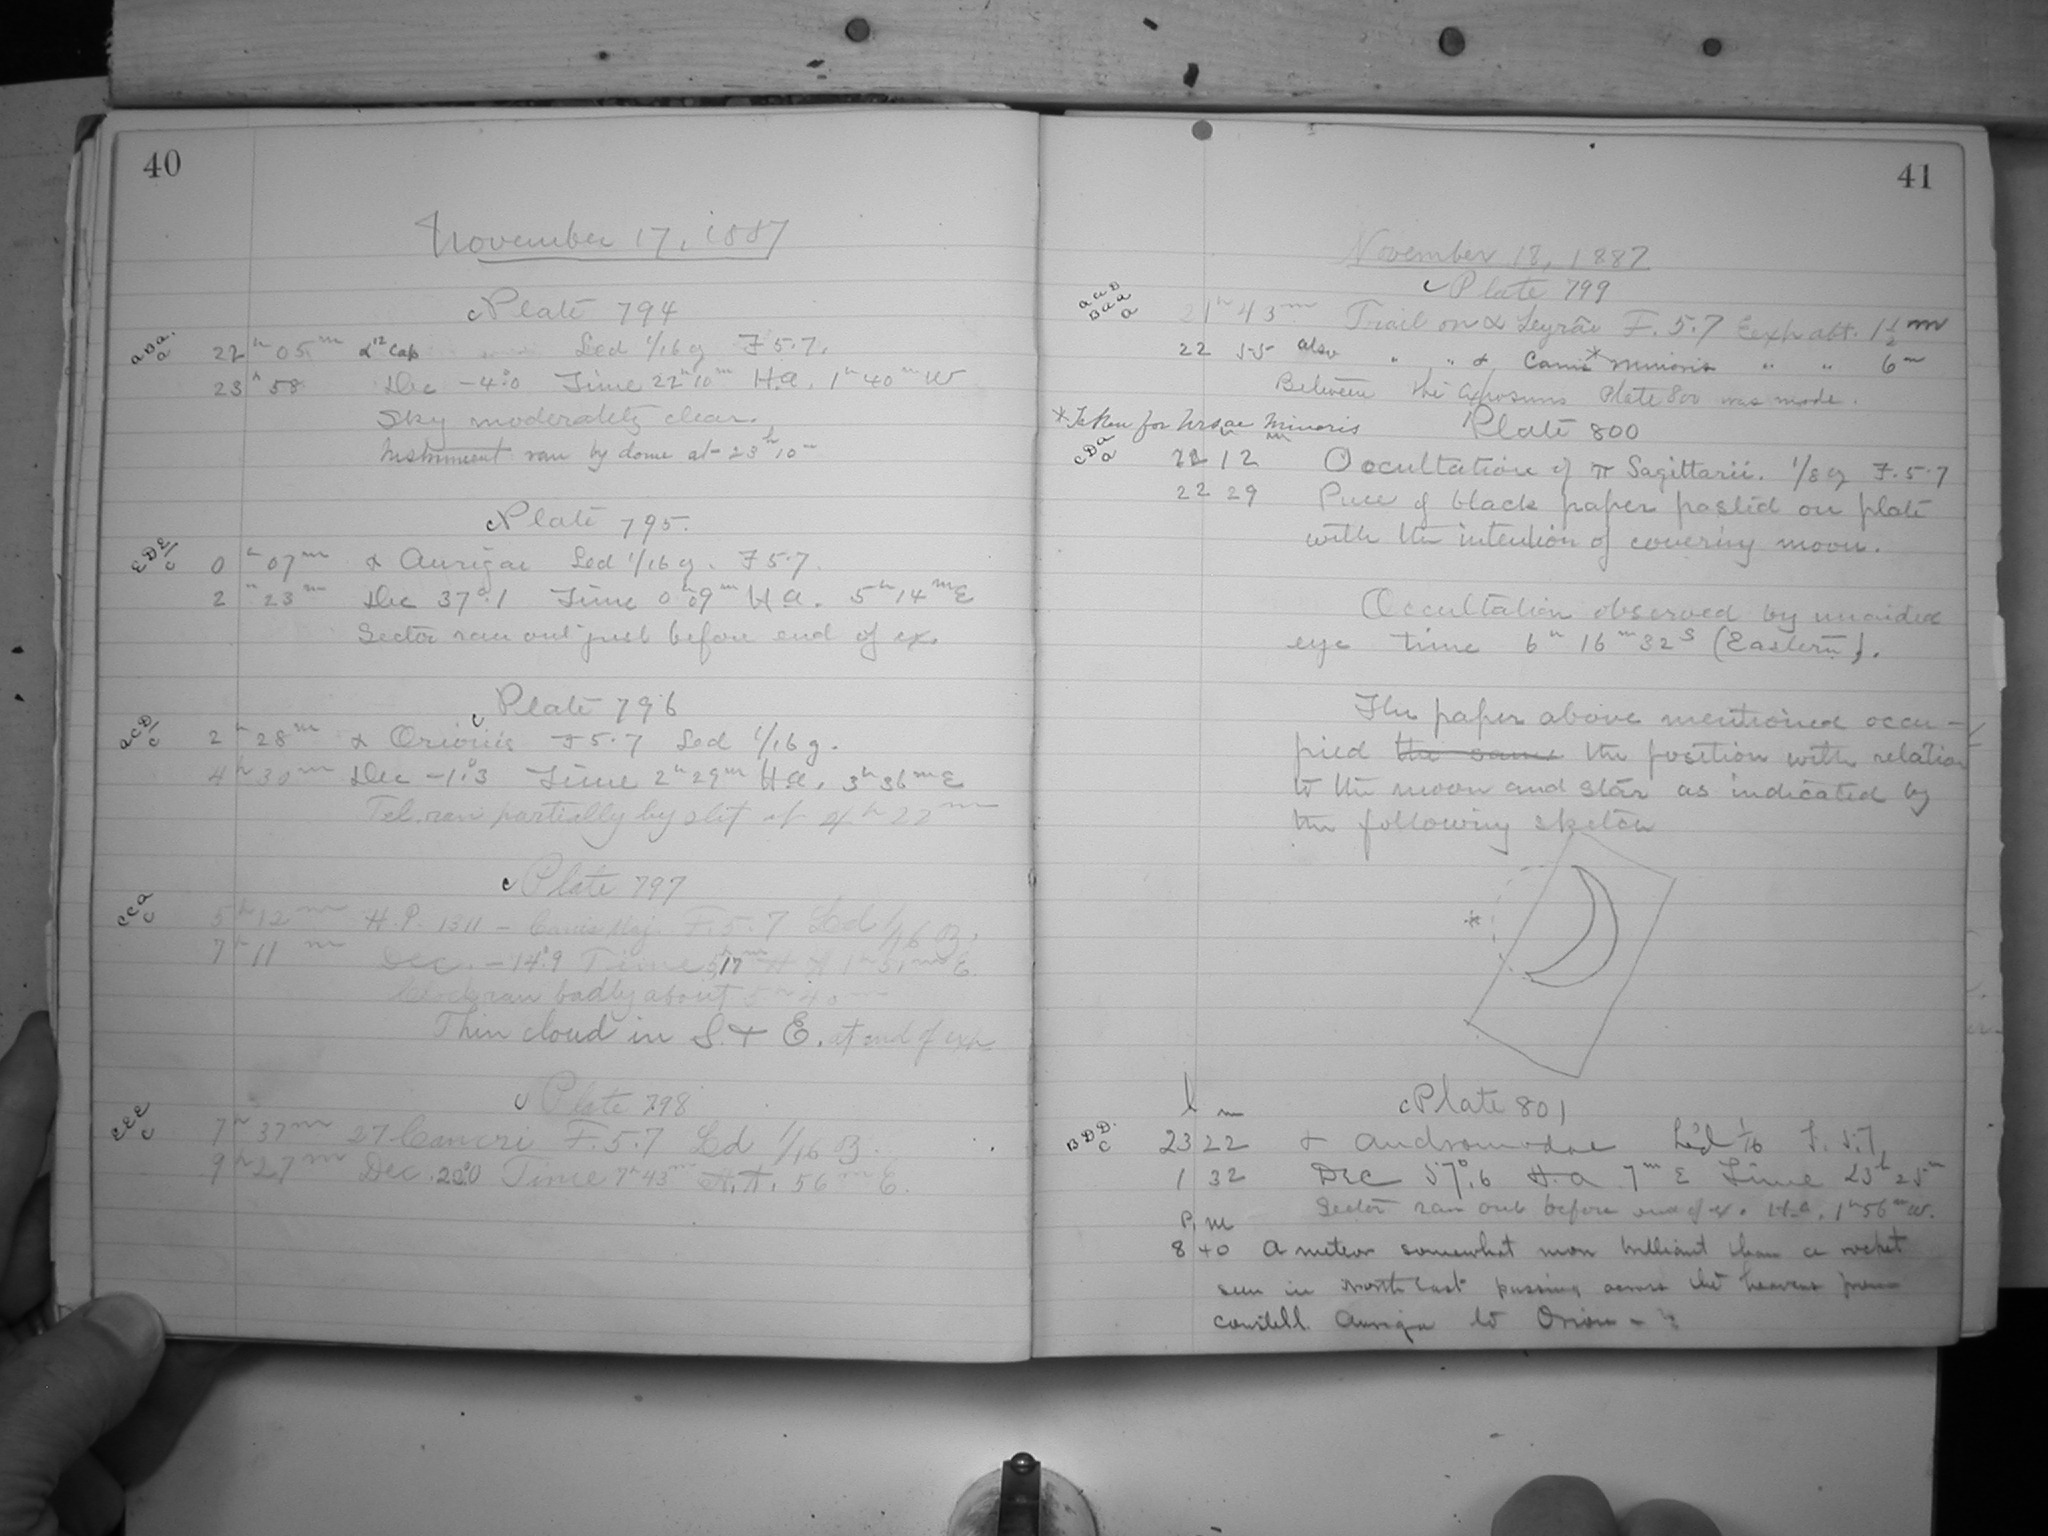 40
November 17, 1887
c Plate 794
a B a. a
22 h 05 m α 12 Cap Sed 1/16 g F 5.7.
23 h 58 Dec -4°.0 Time 22 h 10 m H.a. 1 h 40 m W
Sky moderately clear.
Instrument ran by dome at 23 h 10 m
c Plate 795.
E D E/ c
0 h 07 m α Aurigae Sed 1/16 g. F 5.7.
2 h 23 m Dec 37°.1 Time 0 h 09 m H a. 5 h 14 m E
Sector ran out just before end of ex.
c Plate 796
a c D/ c
2 h 28 m α Orionis F 5.7 Sed 1/16 g.
4 h 30 m Dec -1°.3 Time 2 h 29 m H a. 3 h 36 m E
Tel. ran partially by slit at 4 h 22 m
c Plate 797
c c a c
5 h 12 m H.P. 1311 - Canis Maj. F. 5.7 Sed 1/16 B.
7 h 11 m Dec. -14°.9 Time 5 h 17 m H A 1 h 51 m E.
Clock ran badly about 5 h 40 m
Thin cloud in S. + E. at end of exp
c Plate 798
E E E c
7 h 37 m 27 Cancri F. 5.7 Sed 1/16 B.
9 h 27 m Dec. 20°.0 Time 7 h 43 m H. A. 56 m E.
41
November 18, 1887
c Plate 799
a a D B a a a
21 h 43 m Trail on α Lyrae F. 5.7 Exp abt. 1 1/2 m
22 55 also " " α Canis* Minoris " " 6 m
Between the exposures Plate 800 was made.
*Taken for Ursae Minoris
Plate 800
c D a a
22 12 Occultation of π Sagittarii. 1/8 g F. 5.7
22 29 Piece of black paper pasted on plate
with the intention of covering moon.
Occultation observed by unaided
eye time 6 h 16 m 32 s (Eastern).
The paper above mentioned occu-
pied the same the position with relation
to the moon and star as indicated by
the following sketch
*
c Plate 801
h m
B D D. c
23 22 α Andromedae Sed 1/16 F. 5.7
1 32 Dec 57°.6 H. a 7 m E Time 23 h 25 m
Sector ran out before end of ex. H.a. 1 h 56 m W.
P. m
8 40 A meteor somewhat more brilliant than a rocket
seen in North East passing across the heavens from
constell. Auriga to Orion -